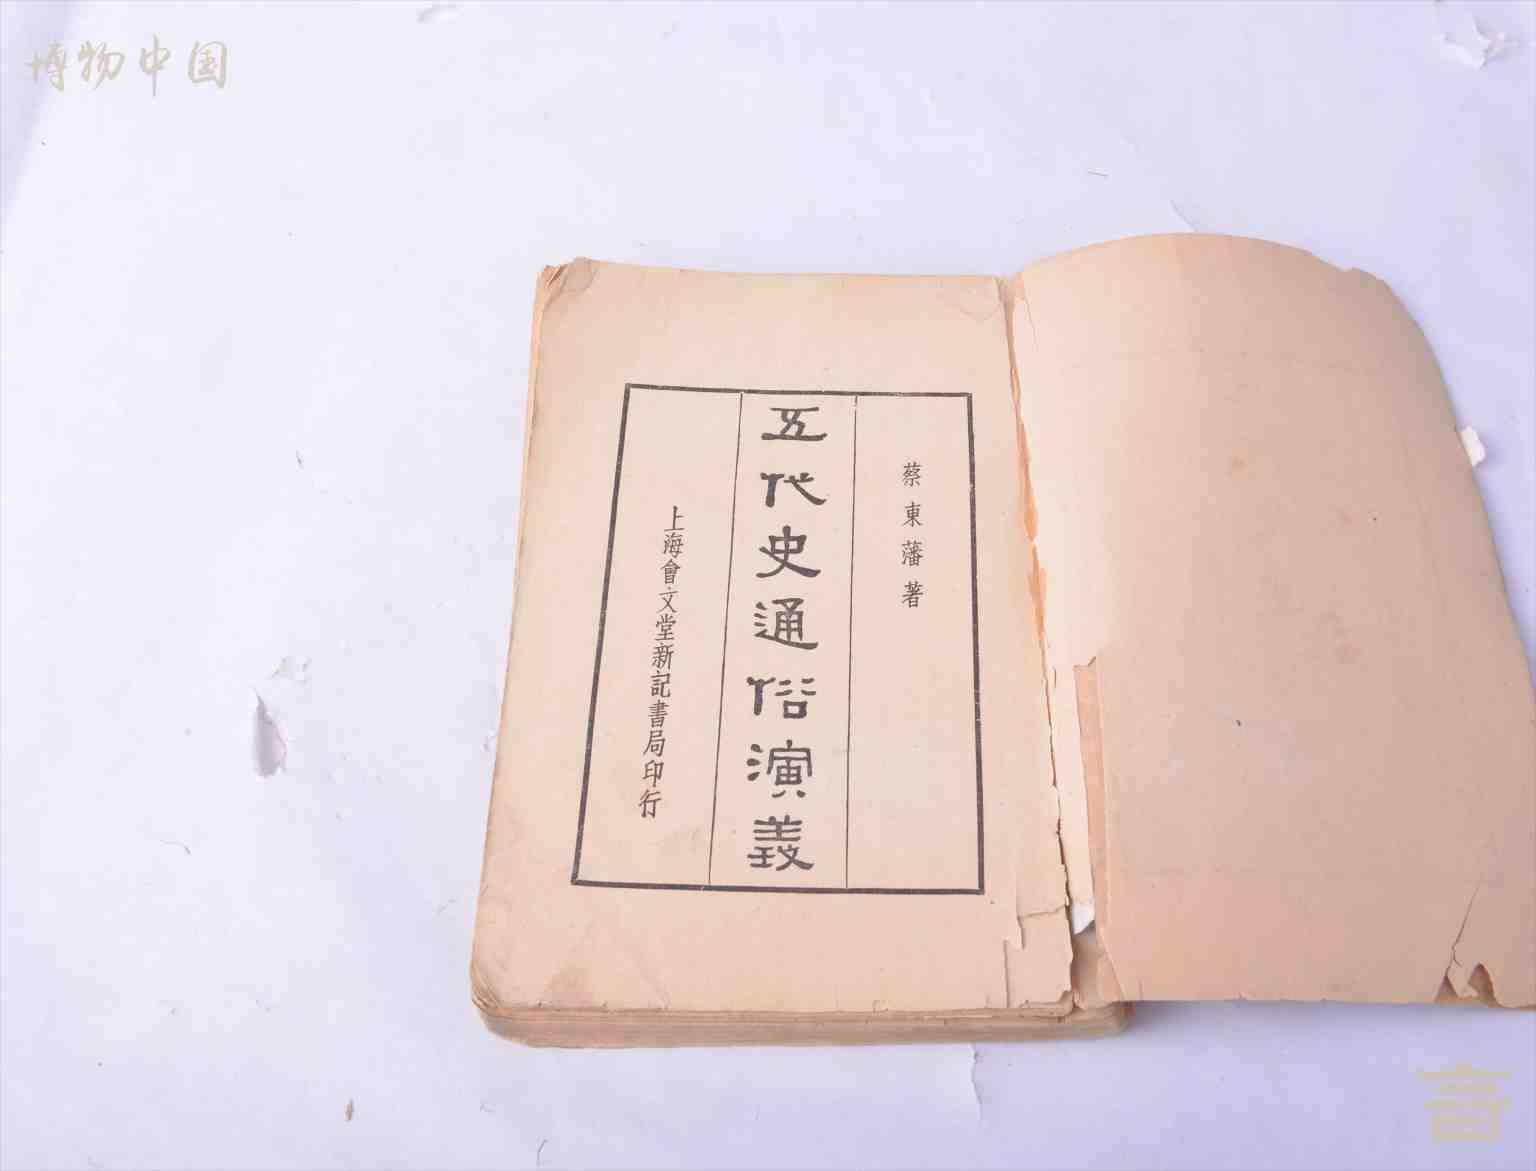 博物中国
蔡東藩著
五代史通俗演義
上海會文堂新記書局印行